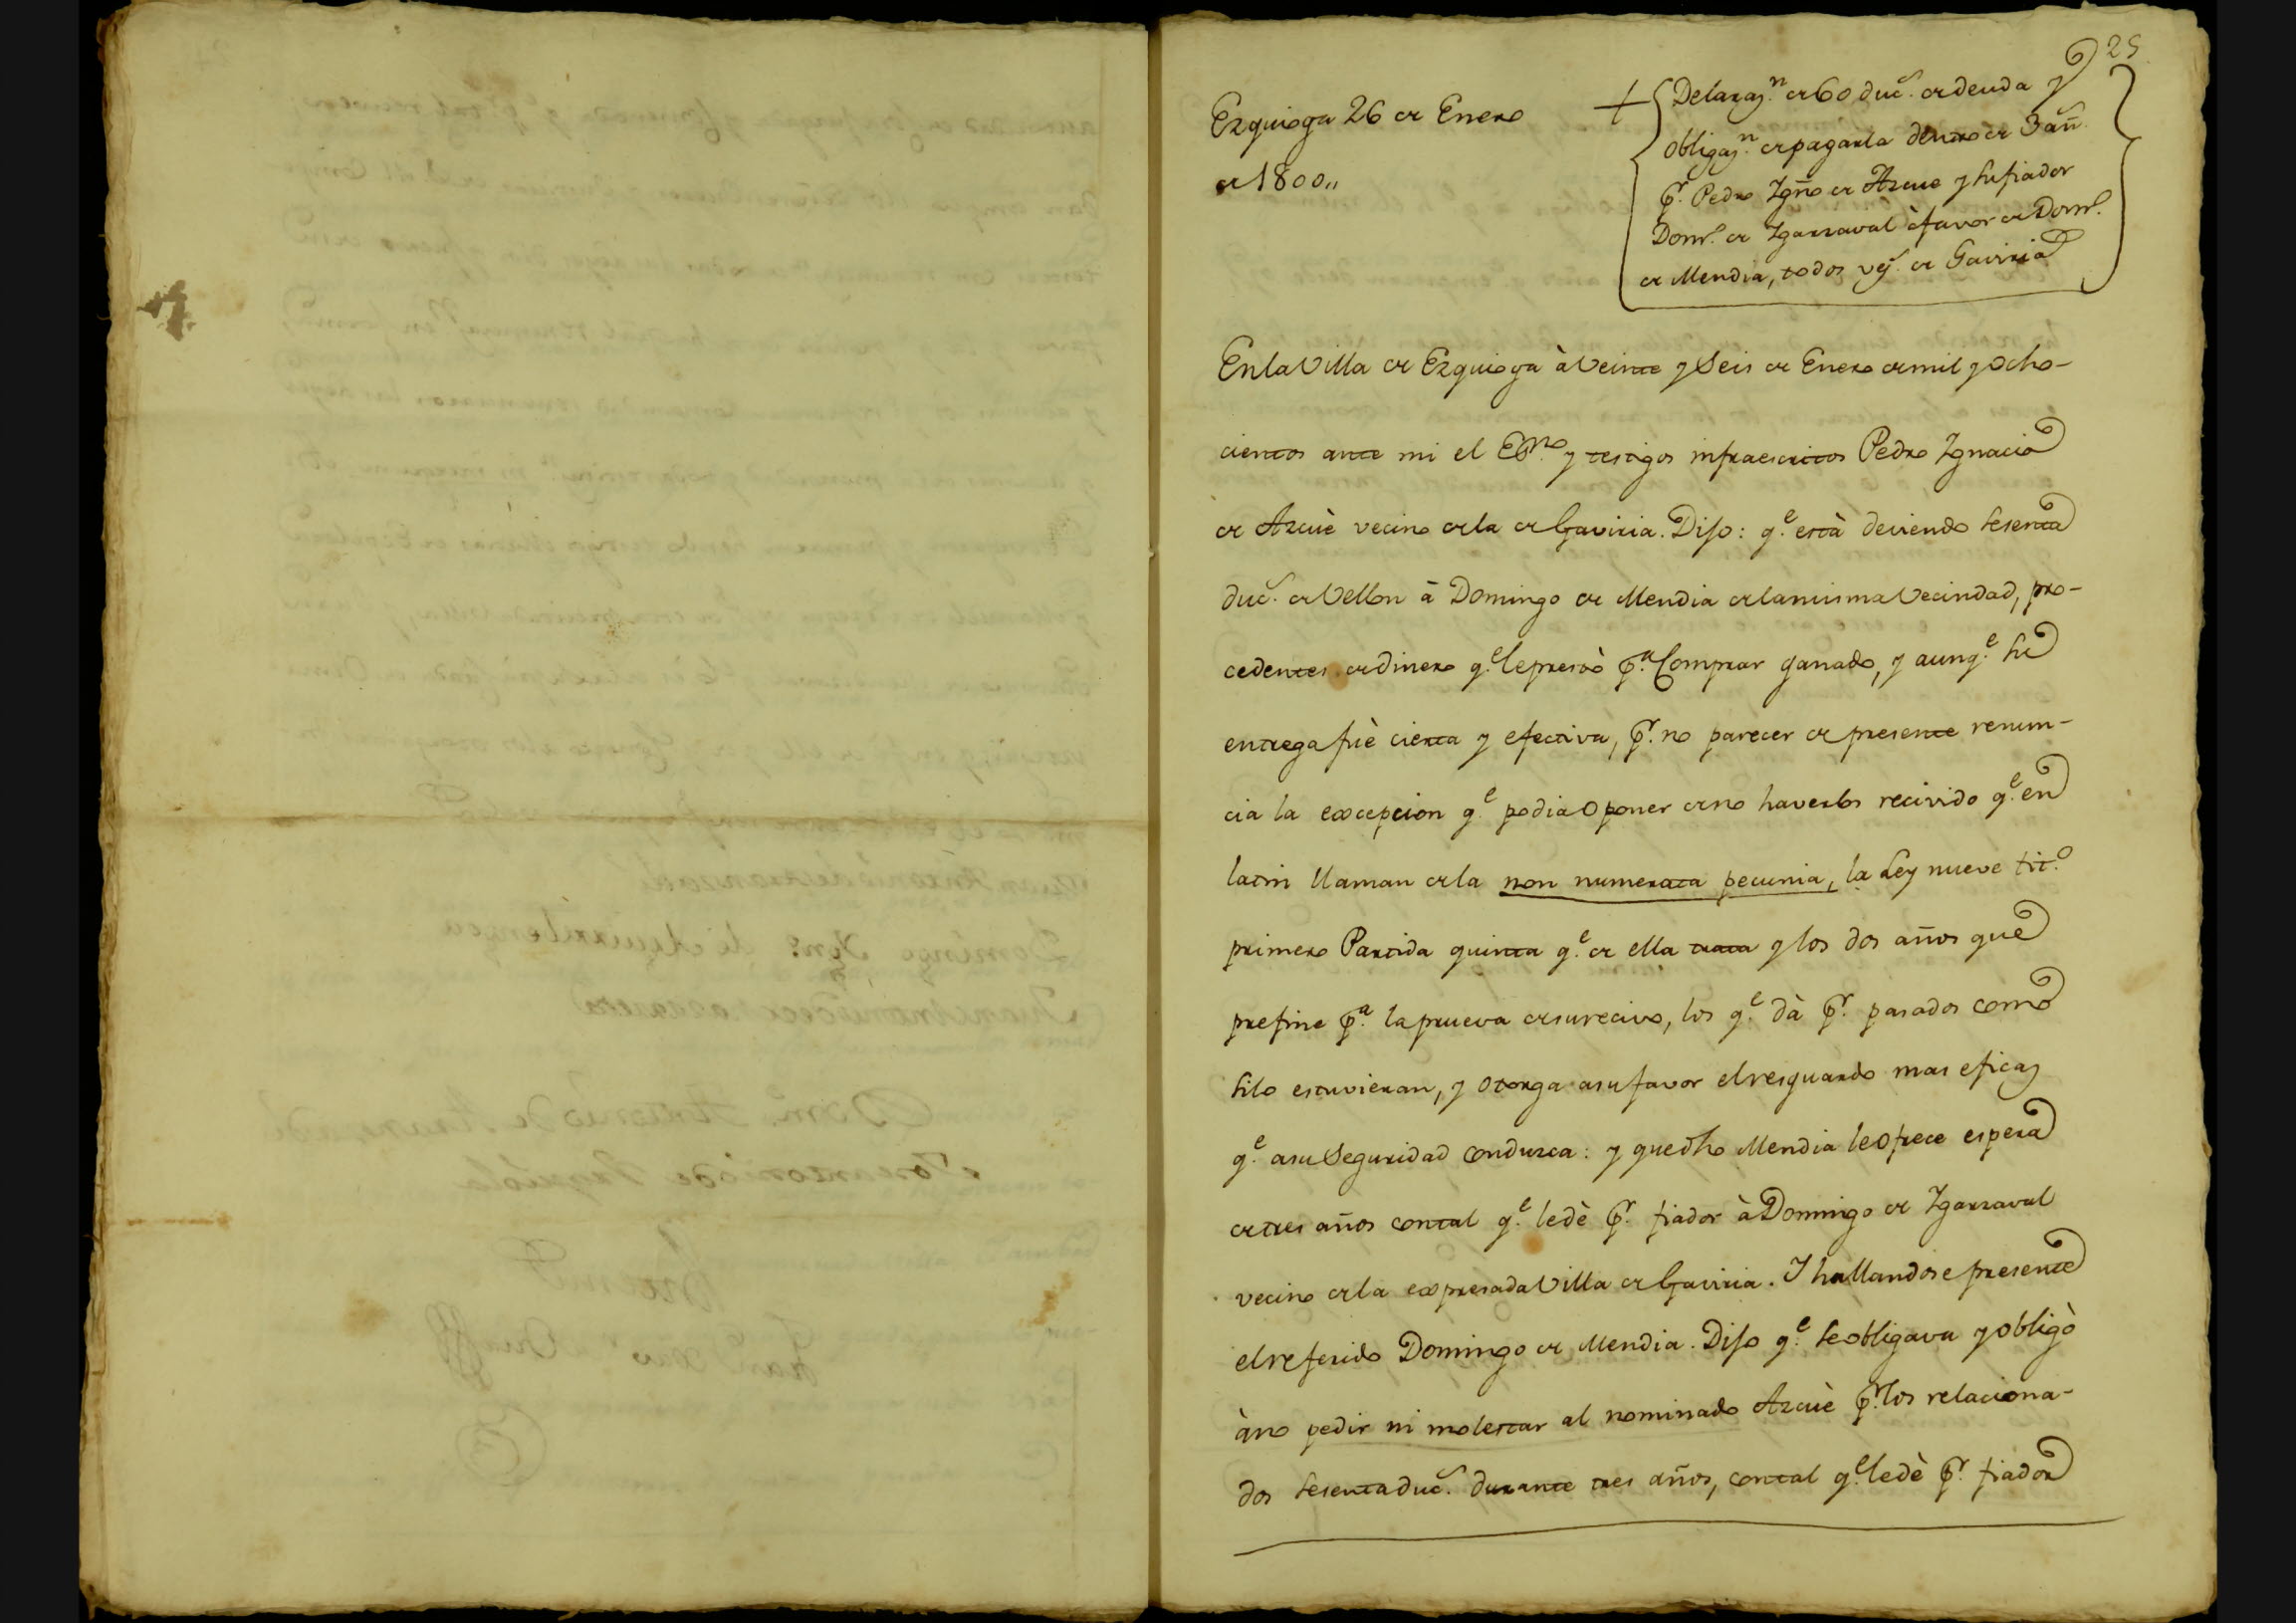 25
Ezquioga 26 de Enero
de 1800,,
Delaraz.n de 60 duc.s de deuda y
obligaz.n de pagarla dentro de 3 añ.s
p.r Pedro Ygn̄o de Azcue y su fiador
Dom.o de Ygarzaval à favor de Dom.o
de Mendia, todos vez.s de Gaviria
En la Villa de Ezquioga à Veinte y Seis de Enero de mil y Ocho-
cientos ante mi el Es.no y testigos infraescritos Pedro Ygnacio
de Azcuè vecino de la de Gaviria. Dijo: q.e està deviendo sesenta
duc.s de Vellon à Domingo de Mendia de la misma Vecindad, pro-
cedentes de dinero q.e le prestò p.a Comprar ganado, y aunq.e su
entrega fuè cierta y efectiva, p.r no parecer de presente renun-
cia la excepcion q.e podia Oponer de no haverlos recivido q.e en
latin llaman de la non numerata pecunia, la Ley nueve tit.o
primero Partida quinta q.e de ella trata y los dos años que
prefine p.a la prueva de su recivo, los q.e dà p.r pasados como
si lo estuvieran, y Otorga a su favor el resguardo mas eficaz
q.e a su Seguridad conduzca: y que dho Mendia le Ofrece espera
de tres años con tal q.e le dè p.r fiador à Domingo de Ygarzaval
vecino de la expresada Villa de Gaviria. Y hallandose presente
el referido Domingo de Mendia. Dijo q.e se obligava y obligò
à no pedir ni molestar al nominado Azcuè p.r los relaciona-
dos sesenta duc.s durante tres años, con tal q.e le dè p.r fiador